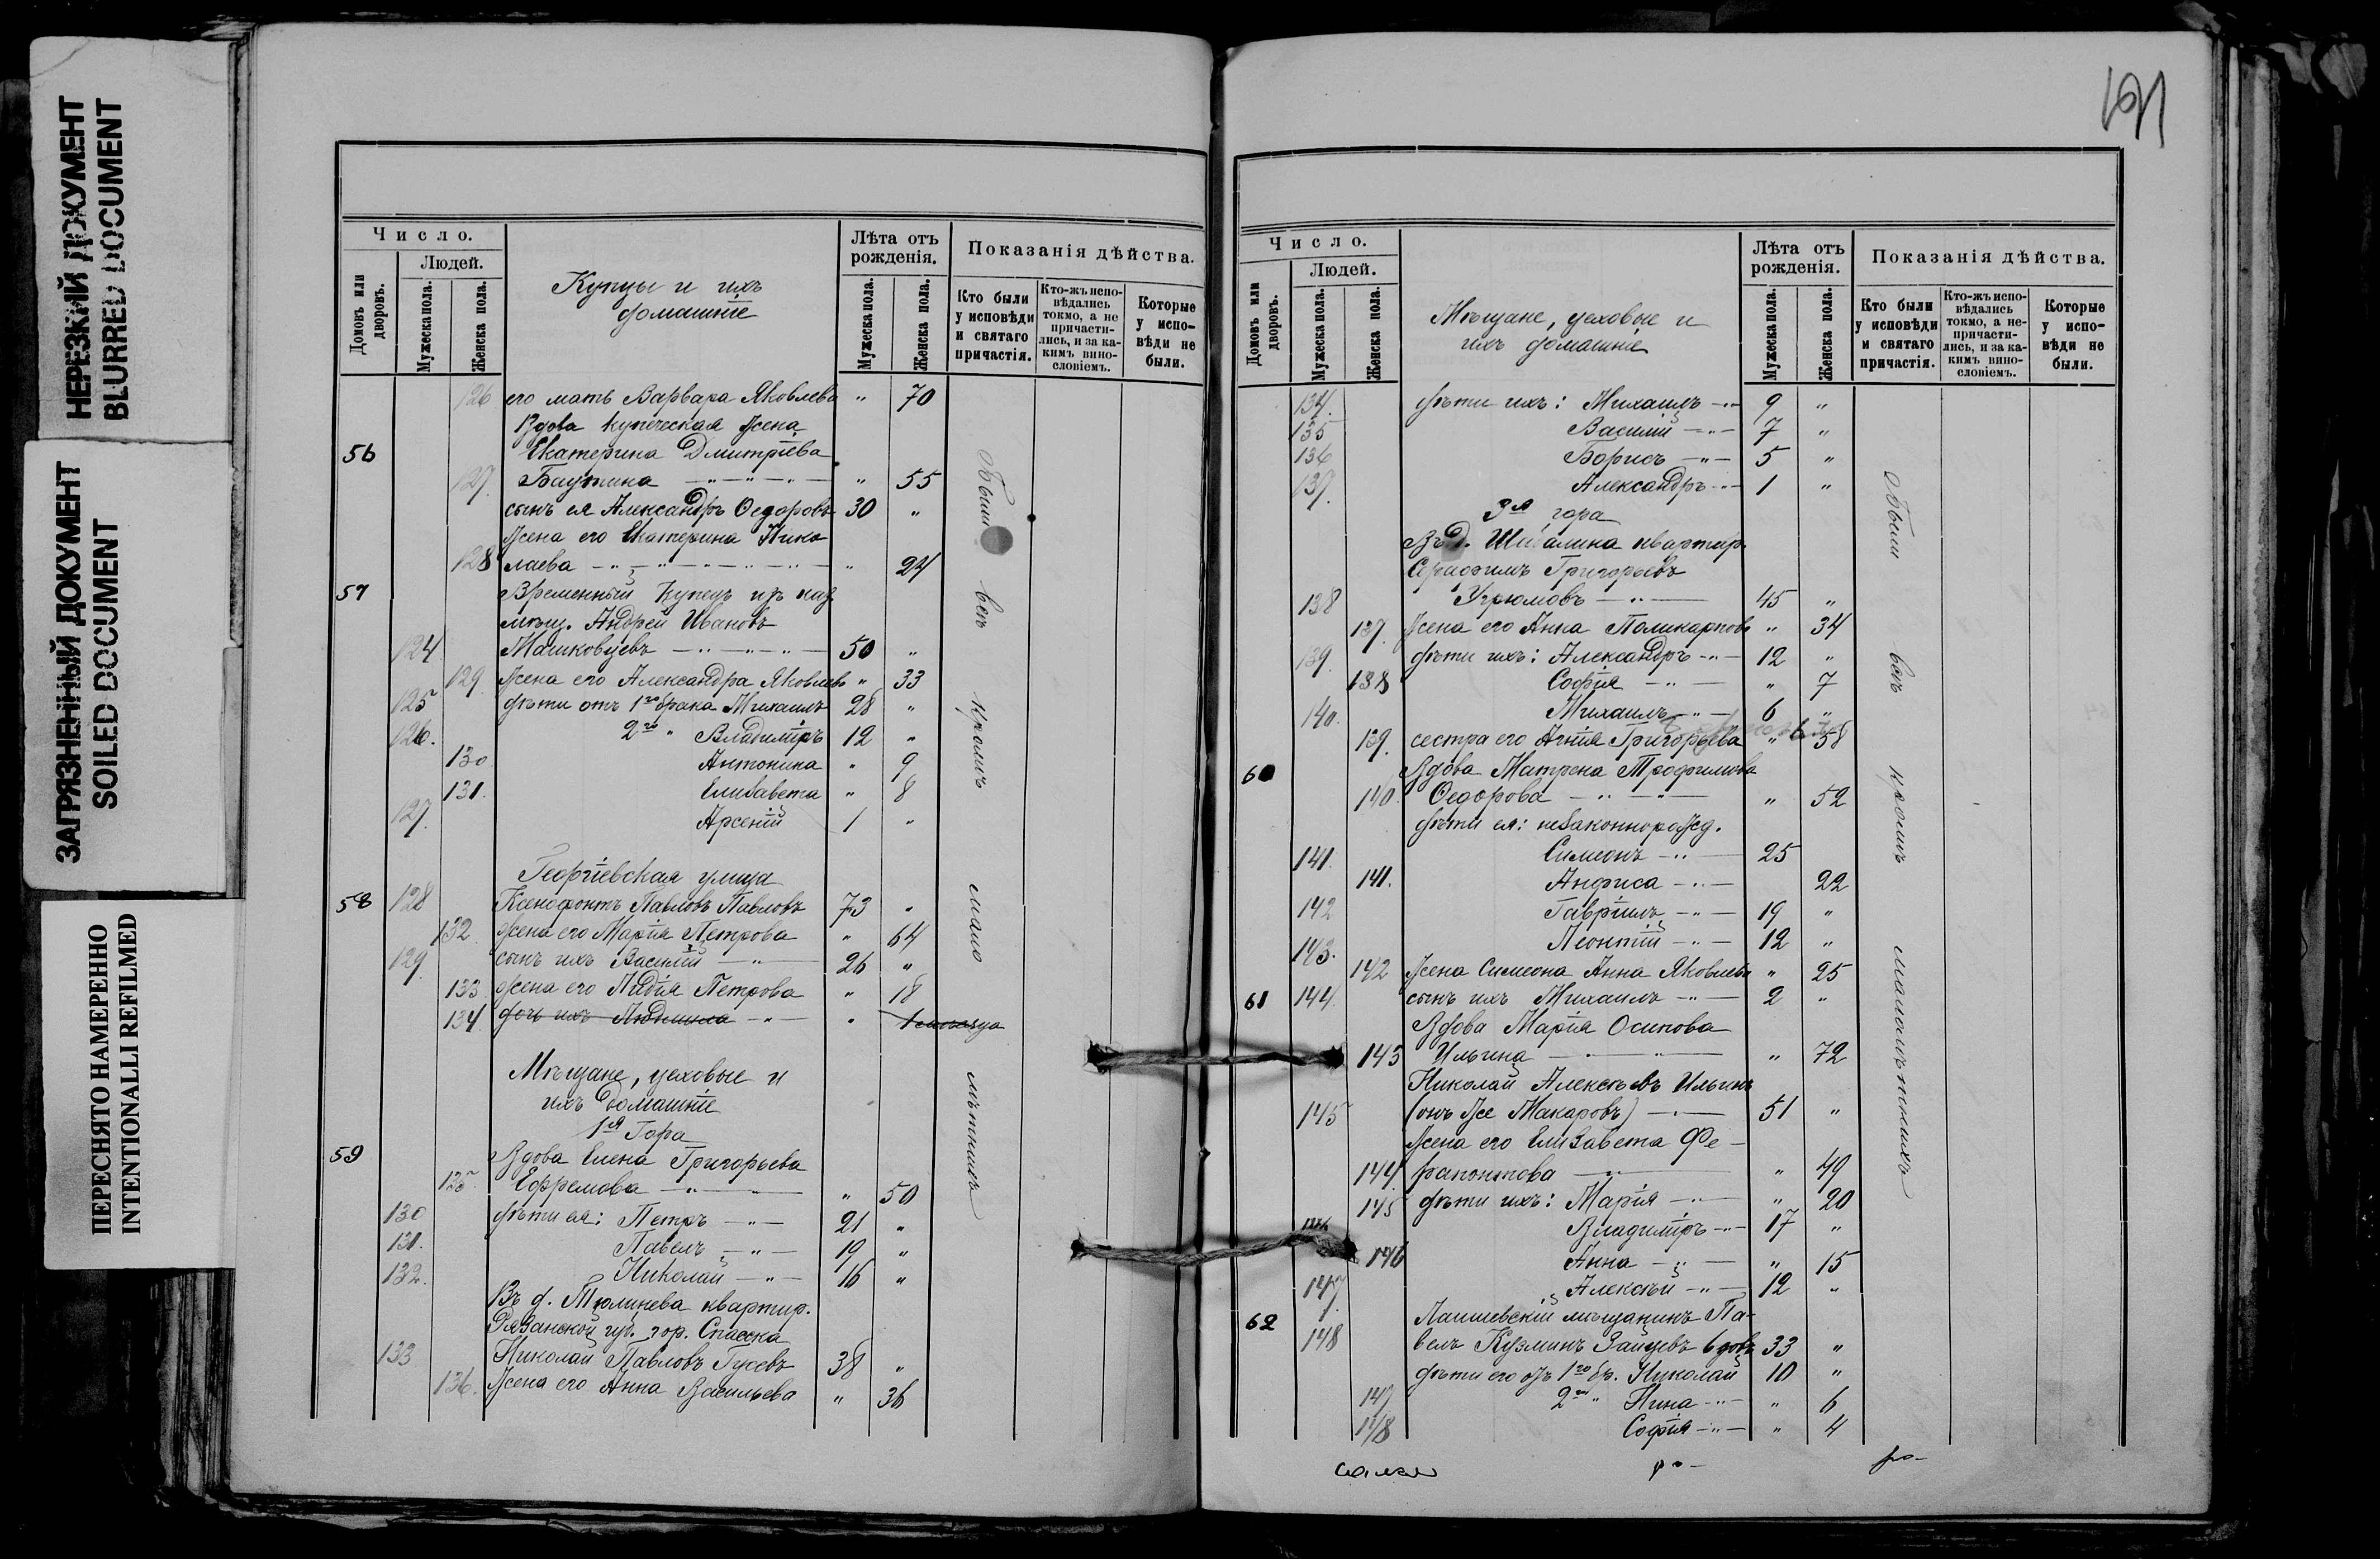 НЕРЕЗКИЙ ДОКУМЕНТ
BLURRED DOCUMENT
ЗАГРЯЗНЕННЫЙ ДОКУМЕНТ
SOILED DOCUMENT
ПЕРЕСНЯТО НАМЕРЕННО
INTENTIONALLI REFILMED
Число.
Людей.
Домовъ или дворовъ.
Мужеска пола.
Женска пола.
Купцы и ихъ
домашніе
Лѣта отъ рожденія.
Мужеска пола.
Женска пола.
Показанія дѣйства.
Кто были у исповѣди и святаго причастія.
Кто-жъ исповѣдались токмо, а не причастились, и за какимъ винословіемъ.
Которые у исповѣди не были.
126 его мать Варвара Яковлева " 70
Вдова купеческая жена
56 Екатерина Дмитріева
127 Баутина " 55
сынъ ея Александръ Ѳедоровъ 30 "
жена его Екатерина Нико
128 лаева " 24
57 Временный купецъ изъ каз.
мѣщ. Андрей Ивановъ
124 Машковцевъ 50 "
129 жена его Александра Яковлева " 33
125 дѣти отъ 1го брака Михаилъ 28 "
126. 2го " Владиміръ 12 "
130 Антонина " 9
131. Елизавета " 8
127. Арсеній 1 "
Георгіевская улица
58 128 Ксенофонтъ Павловъ Павловъ 73 "
132 жена его Марія Петрова " 64
129 сынъ ихъ Василій 26 "
133 жена его Лидія Петрова " 18
134 дочь ихъ Людмила " 1 мѣсяца
Мѣщане, цеховые и
ихъ домашніе
1я Гора
59 Вдова Елена Григорьева
135 Ефремова " 50
130 дѣти ея: Петръ 21 "
131. Павелъ 19 "
132. Николай 16 "
Въ д. Тюлинева квартир.
Рязанской губ. гор. Спасска
133 Николай Павловъ Гусевъ 38 "
136. жена его Анна Васильева " 36
Были всѣ кромѣ мало лѣтнихъ
191
Число.
Людей.
Домовъ или дворовъ.
Мужеска пола.
Женска пола.
Мѣщане, цеховые и
ихъ домашніе
Лѣта отъ рожденія.
Мужеска пола.
Женска пола.
Показанія дѣйства.
Кто были у исповѣди и святаго причастія.
Кто-жъ исповѣдались токмо, а не причастились, и за какимъ винословіемъ.
Которые у исповѣди не были.
134. дѣти ихъ: Михаилъ 9 "
135 Василій 7 "
136 Борисъ 5 "
137. Александръ 1 "
3я гора
Въ д. квартир.
Серафимъ Григорьевъ
138 Угрюмовъ 45 "
137. жена его Анна Поликарпова " 34
139. дѣти ихъ: Александръ 12 "
138 Софія " 7
140. Михаилъ 6 "
139. сестра его Агнія Григорьева " 58
60 Вдова Матрена Трофимова
140. Ѳедорова " 52
дѣти ея: незаконнорожд.
141. Симеонъ 25
141. Анфиса 22
142 Гавріилъ 19 "
143. Леонтій 12 "
142 жена Симеона Анна Яковлева " 25
61 144 сынъ ихъ Михаилъ 2 "
Вдова Марія Осипова
143 Ильина " 72
Николай Алексѣевъ Ильинъ
145 (онъ же Макаровъ) 51 "
жена его Елизавета Фе-
144. рапонтова " 49
145 дѣти ихъ: Марія " 20
146 Владиміръ 17 "
146 Анна " 15
147 Алексѣй 12 "
62 Лаишевскій мѣщанинъ Па-
148 велъ Кузминъ Зайцевъ вдовъ 33 "
дѣти его отъ 1го бр. Николай 10 "
147 2го " Нина " 6
148 Софія " 4
Были всѣ кромѣ малолѣтнихъ